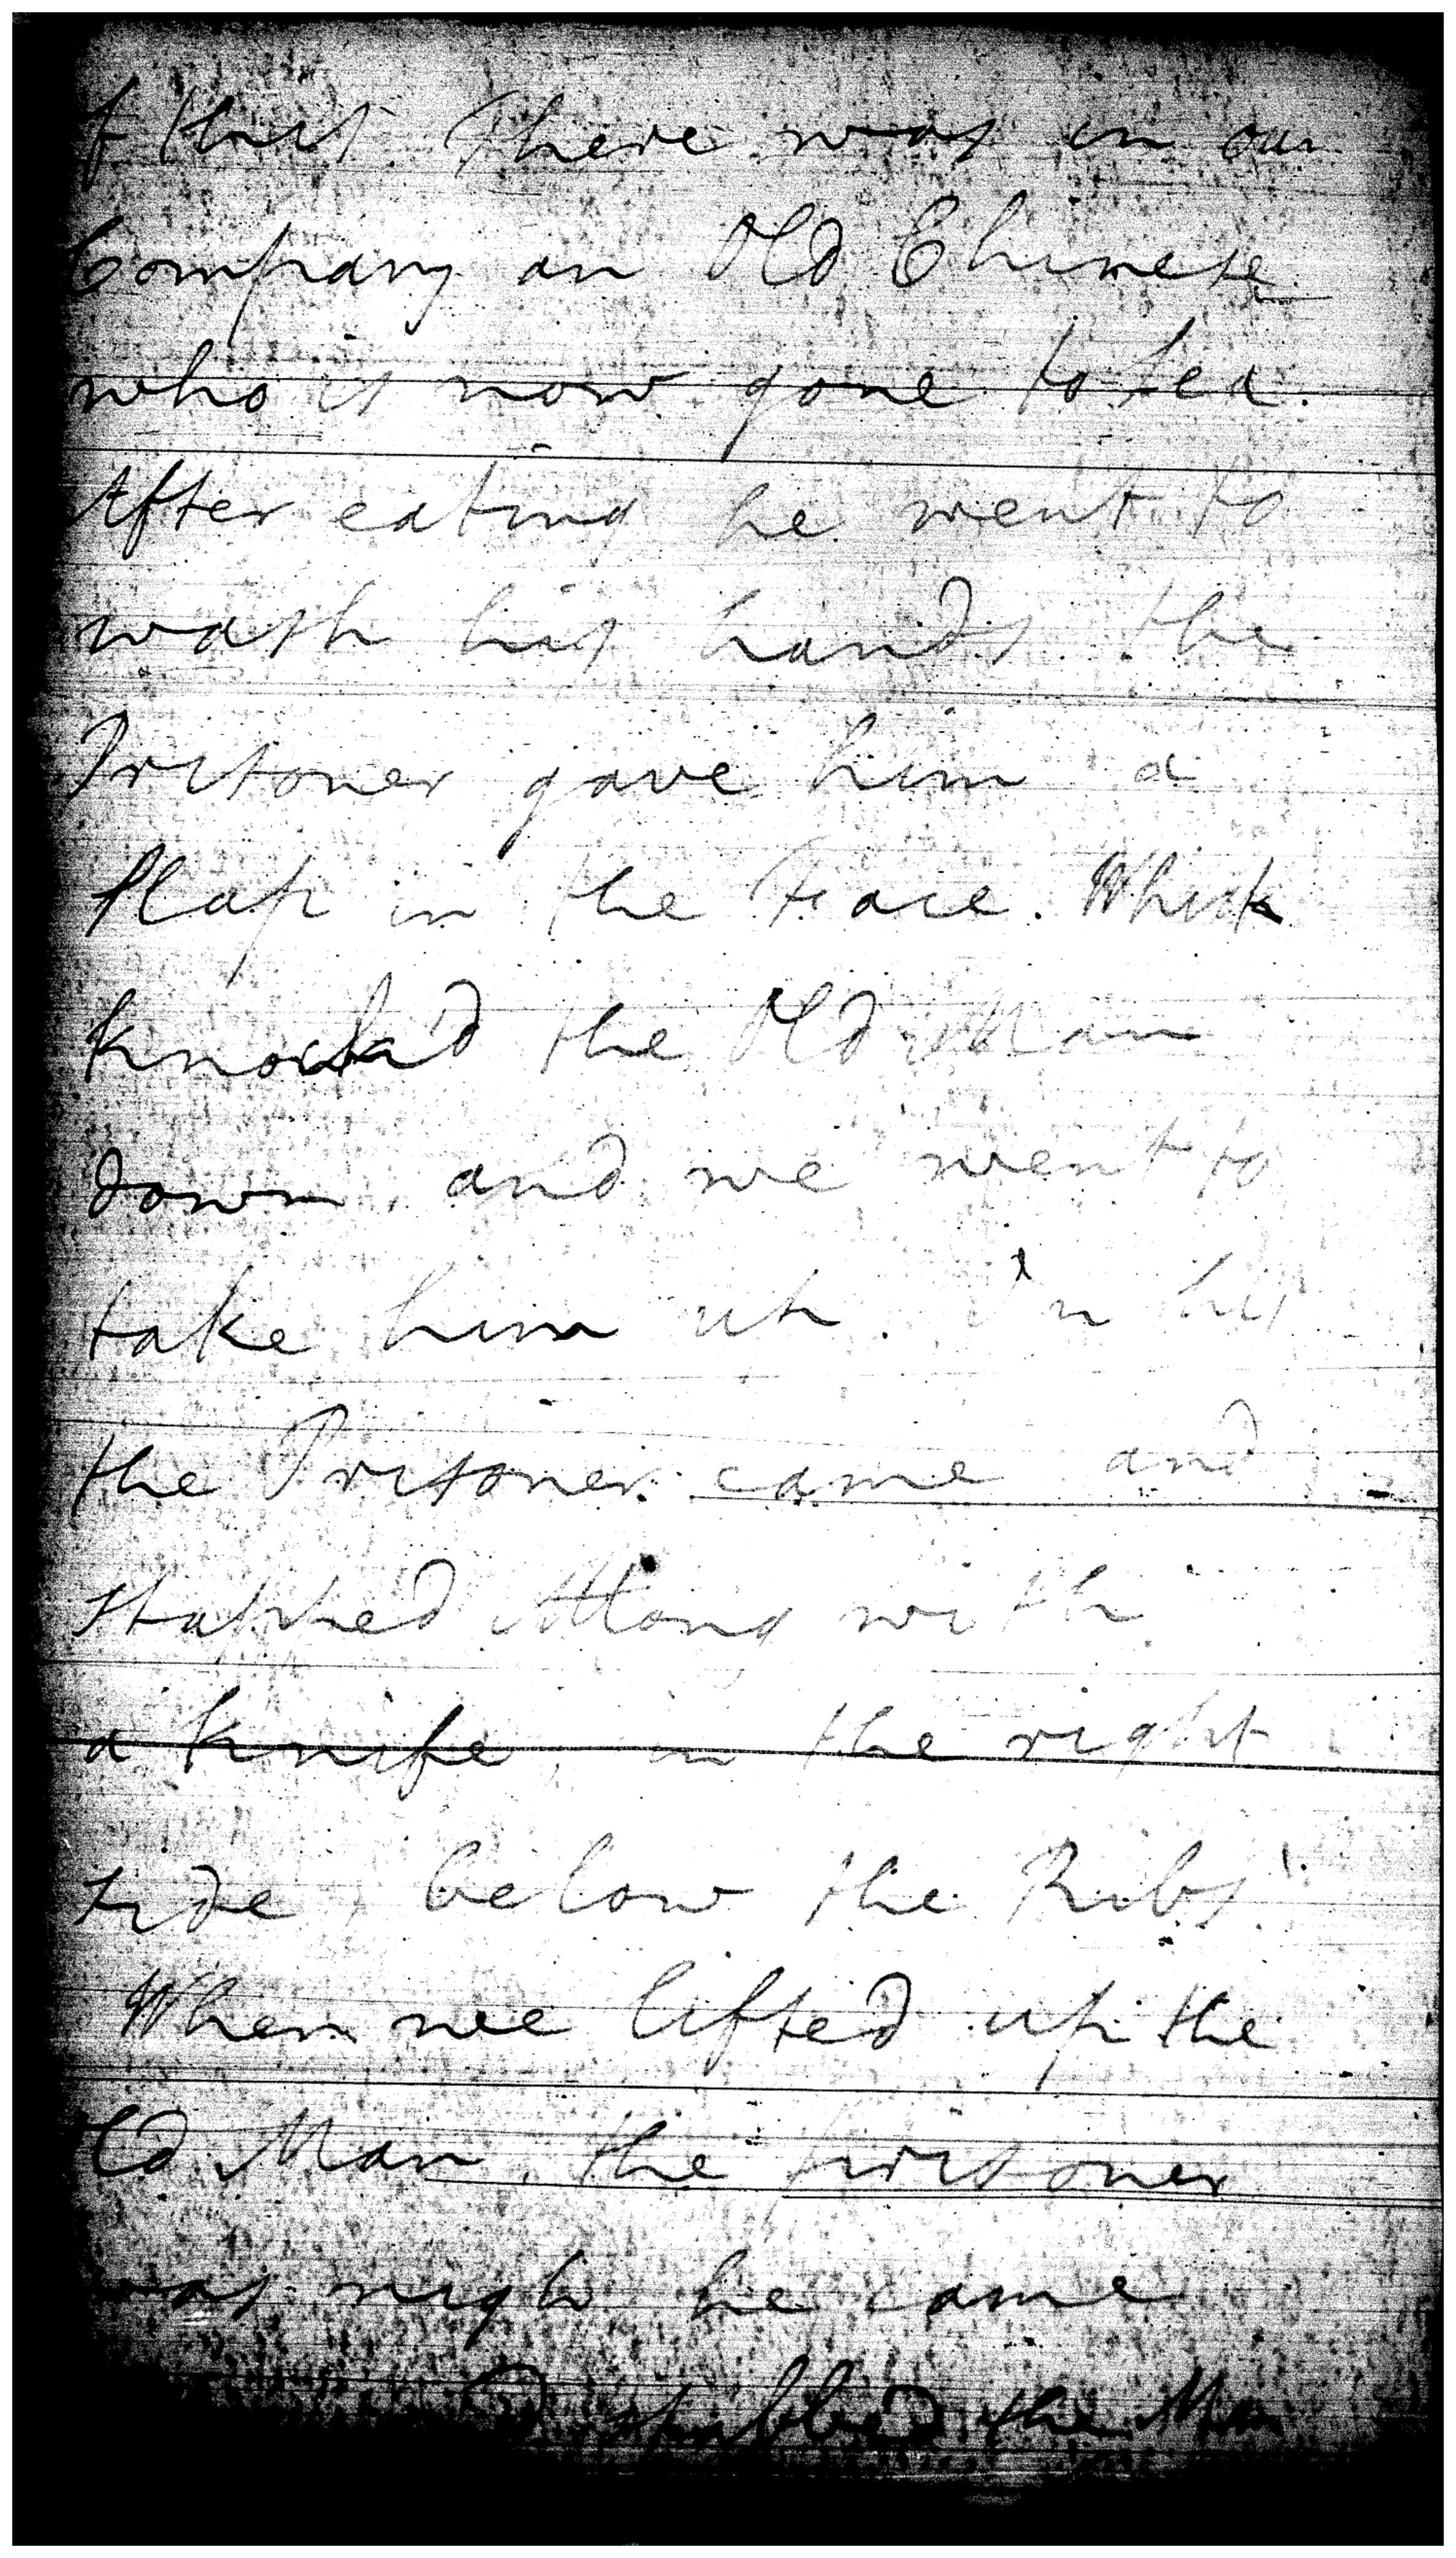 of this. There was in our
Company an Old Chinese
who is now gone to sea.
After eating he went to
wash his hands the
Prisoner gave him a
slap in the Face. Which
knock'd the Old Man
down, and we went to
take him up.
the Prisoner came and
stabbed with
a knife, in the right
side, below the Ribs.
When we lifted up the
Old Man, the prisoner
was nigh he came
stabbed the Man